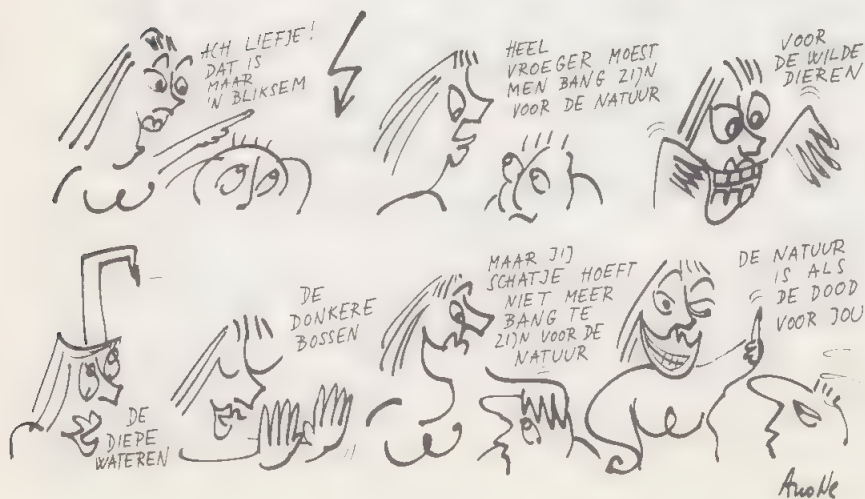 ACH LIEFJE!
DAT IS
MAAR
'N BLIKSEM
HEEL
VROEGER MOEST
MEN BANG ZIJN
VOOR DE NATUUR
VOOR
DE WILDE
DIEREN
DE
DIEPE
WATEREN
DE
DONKERE
BOSSEN
MAAR JIJ
SCHATJE HOEFT
NIET MEER
BANG TE
ZIJN VOOR DE
NATUUR
DE NATUUR
IS ALS
DE DOOD
VOOR JOU